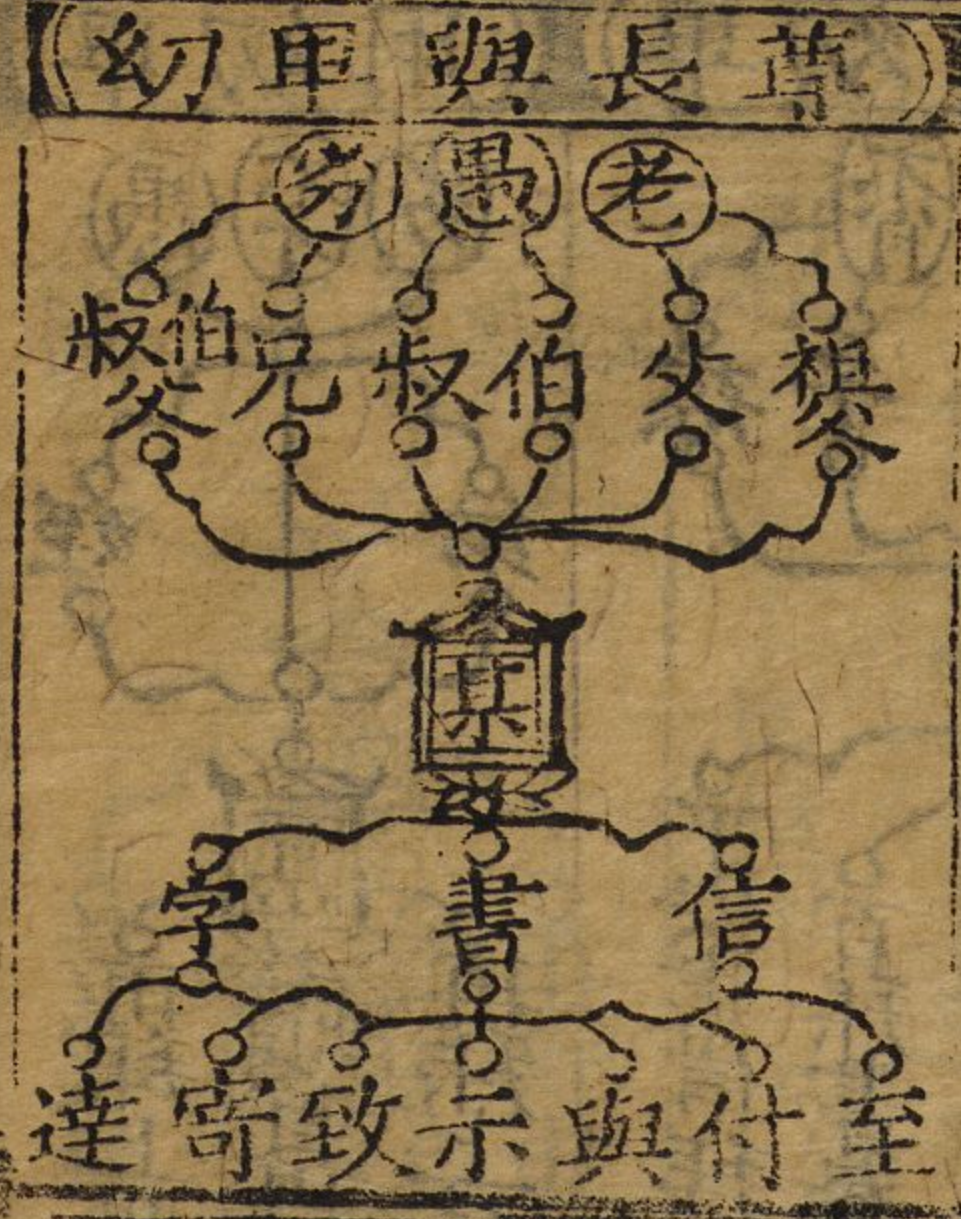 尊長與卑幼
老 愚 劣
祖父 父 伯 叔 兄 伯叔父
某
信 書 字
至 付 與 示 致 寄 達